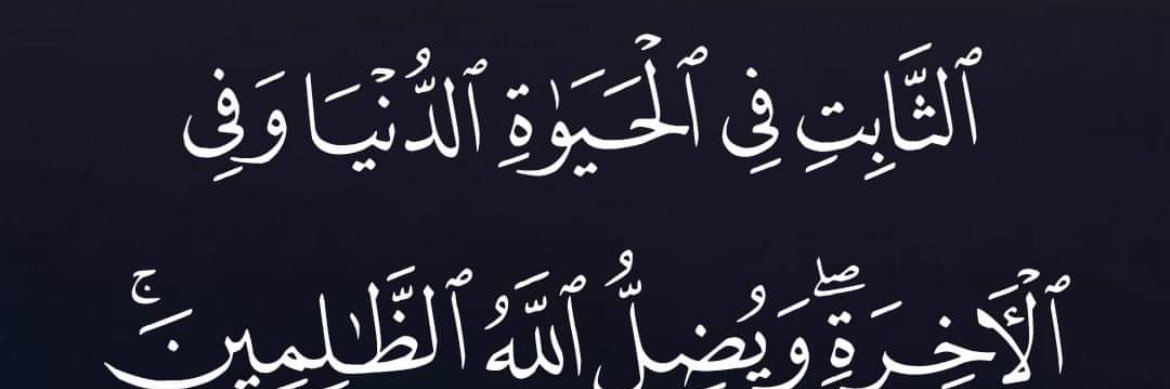 ٱلثَّابِتِ فِى ٱلْحَيَوٰةِ ٱلدُّنْيَا وَفِى
ٱلْأَخِرَةِ ۖ وَيُضِلُّ ٱللَّهُ ٱلظَّـٰلِمِينَ ۚ